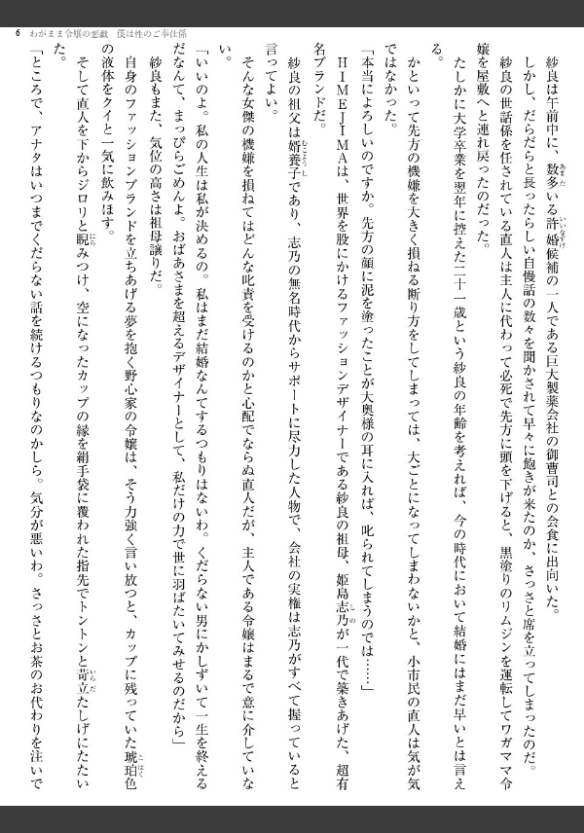 6 わがまま令嬢の悪戯 僕は性のご奉仕係
紗良は午前中に、数多いる許婚候補の一人である巨大製薬会社の御曹司との会食に出向いた。
しかし、だらだらと長ったらしい自慢話の数々を聞かされて早々に飽きが来たのか、さっさと席を立ってしまったのだ。
紗良の世話係を任されている直人は主人に代わって必死で先方に頭を下げると、黒塗りのリムジンを運転してワガママ令
嬢を屋敷へと連れ戻ったのだった。
たしかに大学卒業を翌年に控えた二十一歳という紗良の年齢を考えれば、今の時代において結婚にはまだ早いとは言え
る。
かといって先方の機嫌を大きく損ねる断り方をしてしまっては、大ごとになってしまわないかと、小市民の直人は気が気
ではなかった。
「本当によろしいのですか。先方の顔に泥を塗ったことが大奥様の耳に入れば、叱られてしまうのでは……」
HIMEJIMAは、世界を股にかけるファッションデザイナーである紗良の祖母、姫島志乃が一代で築きあげた、超有
名ブランドだ。
紗良の祖父は婿養子であり、志乃の無名時代からサポートに尽力した人物で、会社の実権は志乃がすべて握っていると
言ってよい。
そんな女傑の機嫌を損ねてはどんな叱責を受けるのかと心配でならぬ直人だが、主人である令嬢はまるで意に介していな
い。
「いいのよ。私の人生は私が決めるの。私はまだ結婚なんてするつもりはないわ。くだらない男にかしずいて一生を終える
だなんて、まっぴらごめんよ。おばあさまを超えるデザイナーとして、私だけの力で世に羽ばたいてみせるのだから」
紗良もまた、気位の高さは祖母譲りだ。
自身のファッションブランドを立ちあげる夢を抱く野心家の令嬢は、そう力強く言い放つと、カップに残っていた琥珀色
の液体をクイと一気に飲みほす。
そして直人を下からジロリと睨みつけ、空になったカップの縁を絹手袋に覆われた指先でトントンと苛立たしげにたたい
た。
「ところで、アナタはいつまでくだらない話を続けるつもりなのかしら。気分が悪いわ。さっさとお茶のお代わりを注いで